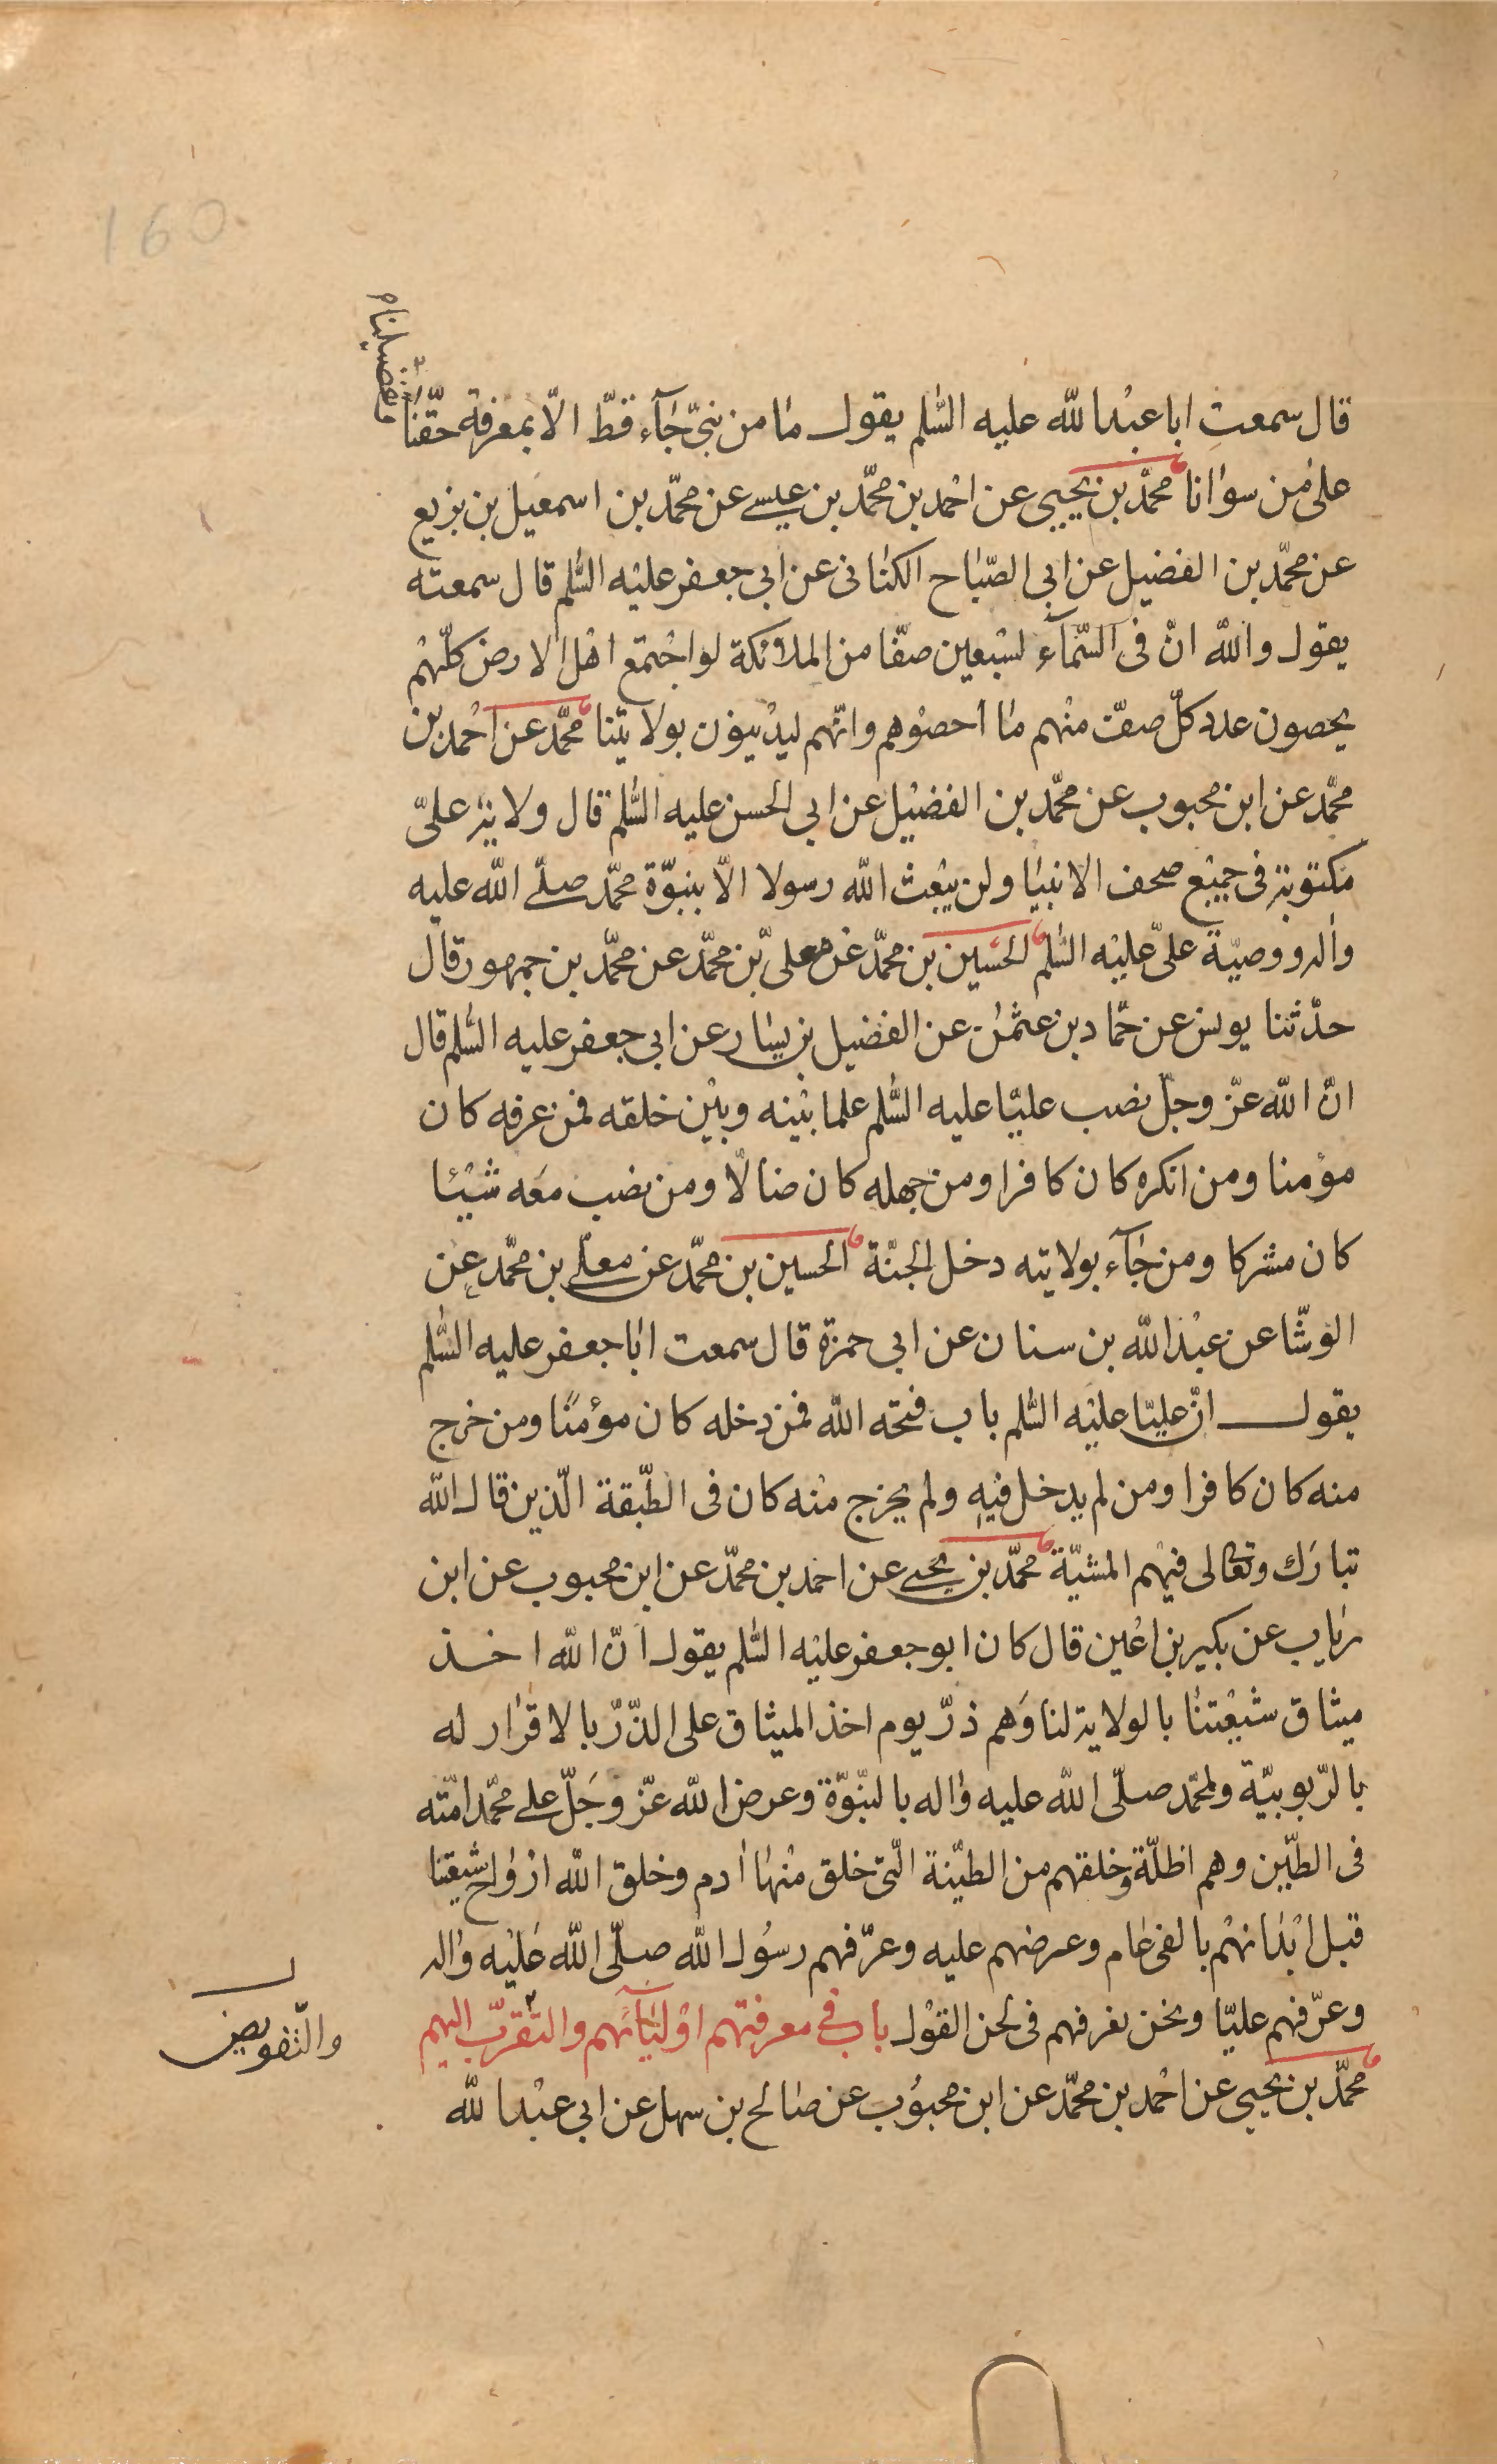 160
قال سمعت ابا عبد الله عليه السّلم يقول ما من نبىّ جآء قطّ الّا بمعرفة حقّنا
وبتفضيلنا
على من سوانا محمّد بن يحيى عن احمد بن محمّد بن عيسى عن محمّد بن اسمعيل بن بزيع
عن محمّد بن الفضيل عن ابى الصّباح الكنانى عن ابى جعفر عليه السّلم قال سمعته
يقول والله انّ فى السّمآء لسبعين صفّا من الملائكة لو اجتمع اهل الارض كلّهم
يحصون عدد كلّ صفّ منهم ما احصوهم وانّهم ليدينون بولايتنا محمّد عن احمد بن
محمّد عن ابن محبوب عن محمّد بن الفضيل عن ابى الحسن عليه السّلم قال ولاية علىّ
مكتوبة فى جميع صحف الانبيا ولن يبعث الله رسولا الّا بنبوّة محمّد صلّى الله عليه
واله ووصيّة علىّ عليه السّلم الحسين بن محمّد عن معلى بن محمّد عن محمّد بن جمهور قال
حدّثنا يونس عن حمّاد بن عثمن عن الفضيل بن يسار عن ابى جعفر عليه السّلم قال
انّ الله عزّ وجلّ نصب عليّا عليه السّلم علما بينه وبين خلقه فمن عرفه كان
مؤمنا ومن انكره كان كافرا ومن جهله كان ضالّا ومن نصب معه شيئا
كان مشركا ومن جآء بولايته دخل الجنّة الحسين بن محمّد عن معلّى بن محمّد عن
الوشّا عن عبد الله بن سنان عن ابى حمزة قال سمعت ابا جعفر عليه السّلم
يقول انّ عليّا عليه السّلم باب فتحه الله فمن دخله كان مؤمنا ومن خرج
منه كان كافرا ومن لم يدخل فيه ولم يخرج منه كان فى الطّبقة الّذين قال الله
تبارك وتعالى فيهم المشيّة محمّد بن يحيى عن احمد بن محمّد عن ابن محبوب عن ابن
رياب عن بكير بن اعين قال كان ابو جعفر عليه السّلم يقول انّ الله اخذ
ميثاق شيعتنا بالولاية لنا وهم ذرّ يوم اخذ الميثاق على الذّرّ بالاقرار له
بالرّبوبيّة ولمحمّد صلّى الله عليه واله بالنّبوّة وعرض الله عزّ وجلّ على محمّد امّته
فى الطّين وهم اظلّة وخلقهم من الطّينة الّتى خلق منها ادم وخلق الله ارواح شيعتنا
قبل ابدانهم بالفى عام وعرضهم عليه وعرّفهم رسول الله صلّى الله عليه واله
وعرّفهم عليّا ونحن نعرفهم فى لحن القول باب فى معرفتهم اوليآئهم والتّقرّب اليهم
والتّفويض
محمّد بن يحيى عن احمد بن محمّد عن ابن محبوب عن صالح بن سهل عن ابى عبد الله